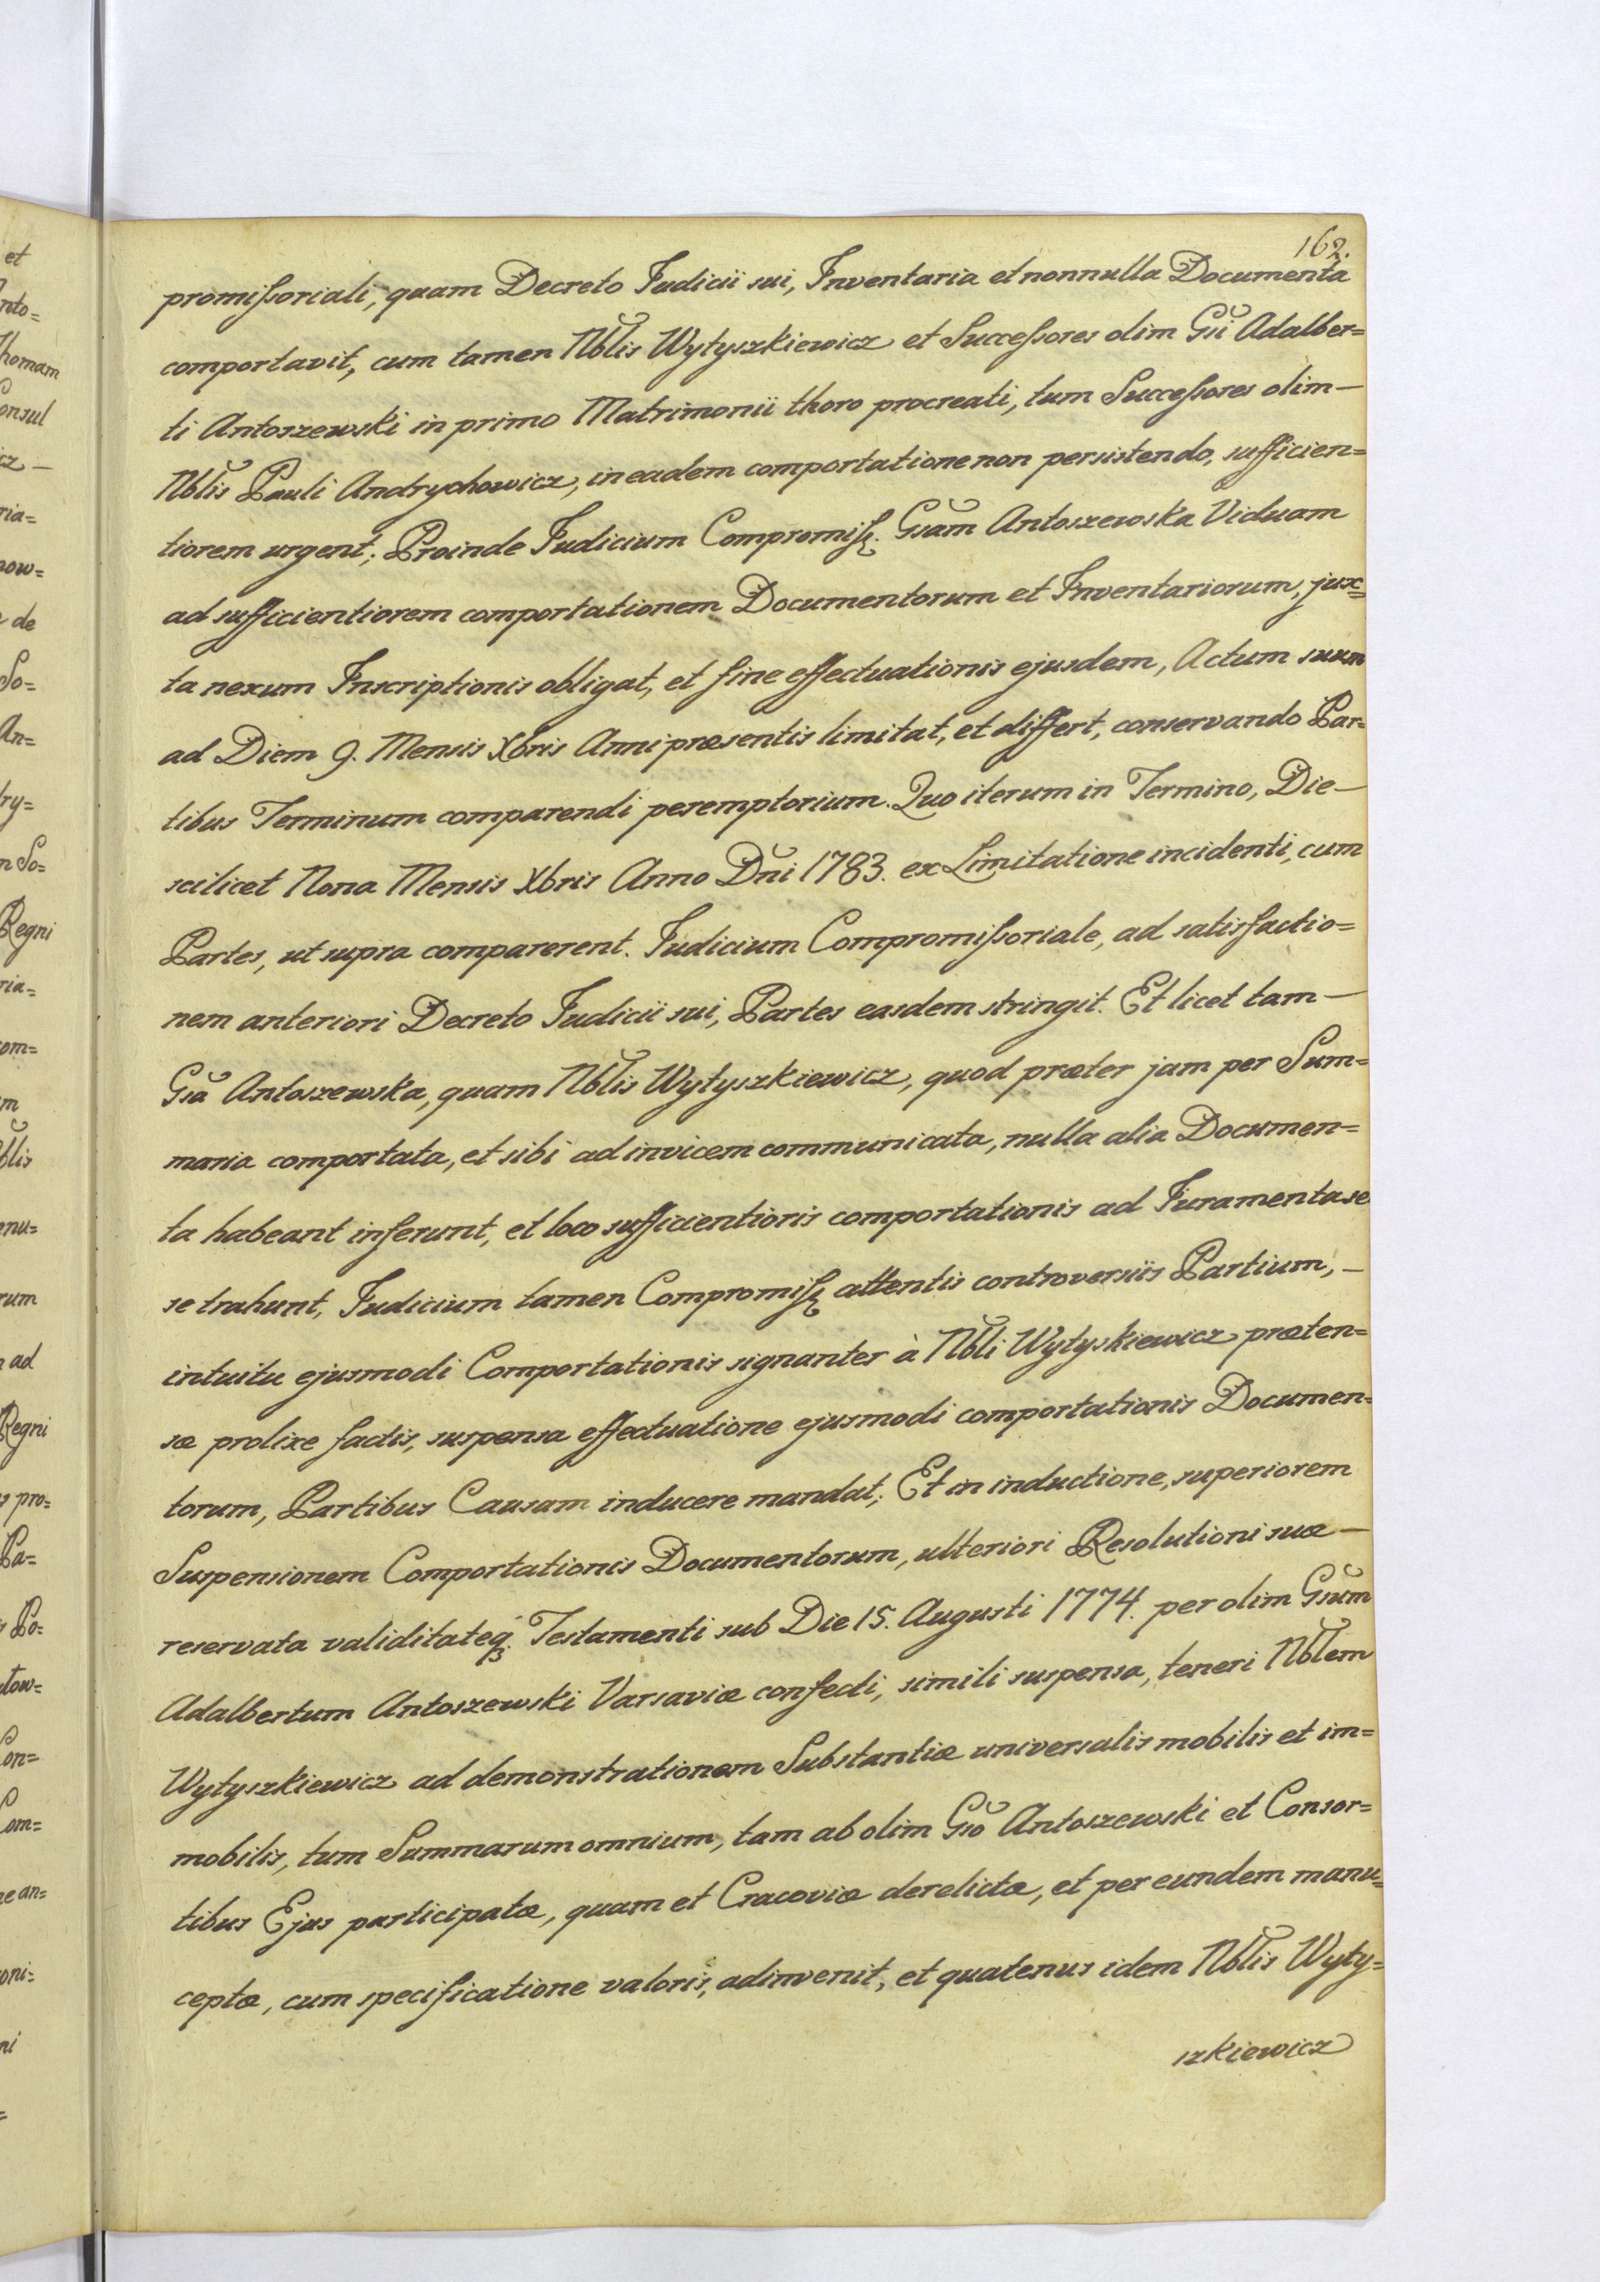 162.
promißoriali, quam Decreto Judicii sui, Inventaria et nonnulla Documenta
comportavit, cum tamen Nblis Wytyszkiewicz et Succeßores olim Gsi Adalber=
ti Antoszewski in primo Matrimonii thoro procreati, tum Succeßores olim —
Nblis Pauli Andrychowicz, in eadem comportatione non persistendo, sufficien=
tiorem urgent; Proinde Judicium Compromiß. Gsam Antoszewska Viduam
ad sufficientiorem comportationem Documentorum et Inventariorum, jux=
ta nexum Inscriptionis obligat, et fine effectuationis ejusdem, Actum suum
ad Diem 9. Mensis Xbris Anni præsentis limitat, et differt, conservando Par=
tibus Terminum comparendi peremptorium. Quo iterum in Termino, Die —
scilicet Nona Mensis Xbris Anno Dni 1783. ex Limitatione incidenti, cum
Partes, ut supra comparerent. Judicium Compromißoriale, ad satisfactio=
nem anteriori Decreto Judicii sui, Partes easdem stringit. Et licet tam —
Gsa Antoszewska, quam Nblis Wytyszkiewicz, quod præter jam per Sum=
maria comportata, et sibi ad invicem communicata, nulla alia Documen=
ta habeant inferunt, et loco sufficientioris comportationis ad Juramenta se
se trahunt, Judicium tamen Compromiß attentis controversiis Partium, —
intuitu ejusmodi Comportationis signanter à Nbli Wytyskiewicz præten=
sæ prolixe factis, suspensa effectuatione ejusmodi comportationis Documen=
torum, Partibus Causam inducere mandat; Et in inductione, superiorem
Suspensionem Comportationis Documentorum, ulteriori Resolutioni suæ —
reservata validitateq3 Testamenti sub Die 15. Augusti 1774. per olim Gsum
Adalbertum Antoszewski Varsaviæ confecti, simili suspensa, teneri Nblem
Wytyszkiewicz ad demonstrationem Substantiæ universalis mobilis et im=
mobilis, tum Summarum omnium, tam ab olim Gso Antoszewski et Consor=
tibus Ejus participatæ, quam et Cracoviæ derelictæ, et per eundem manu=
ceptæ, cum specificatione valoris, adinvenit, et quatenus idem Nblis Wyty=
szkiewicz